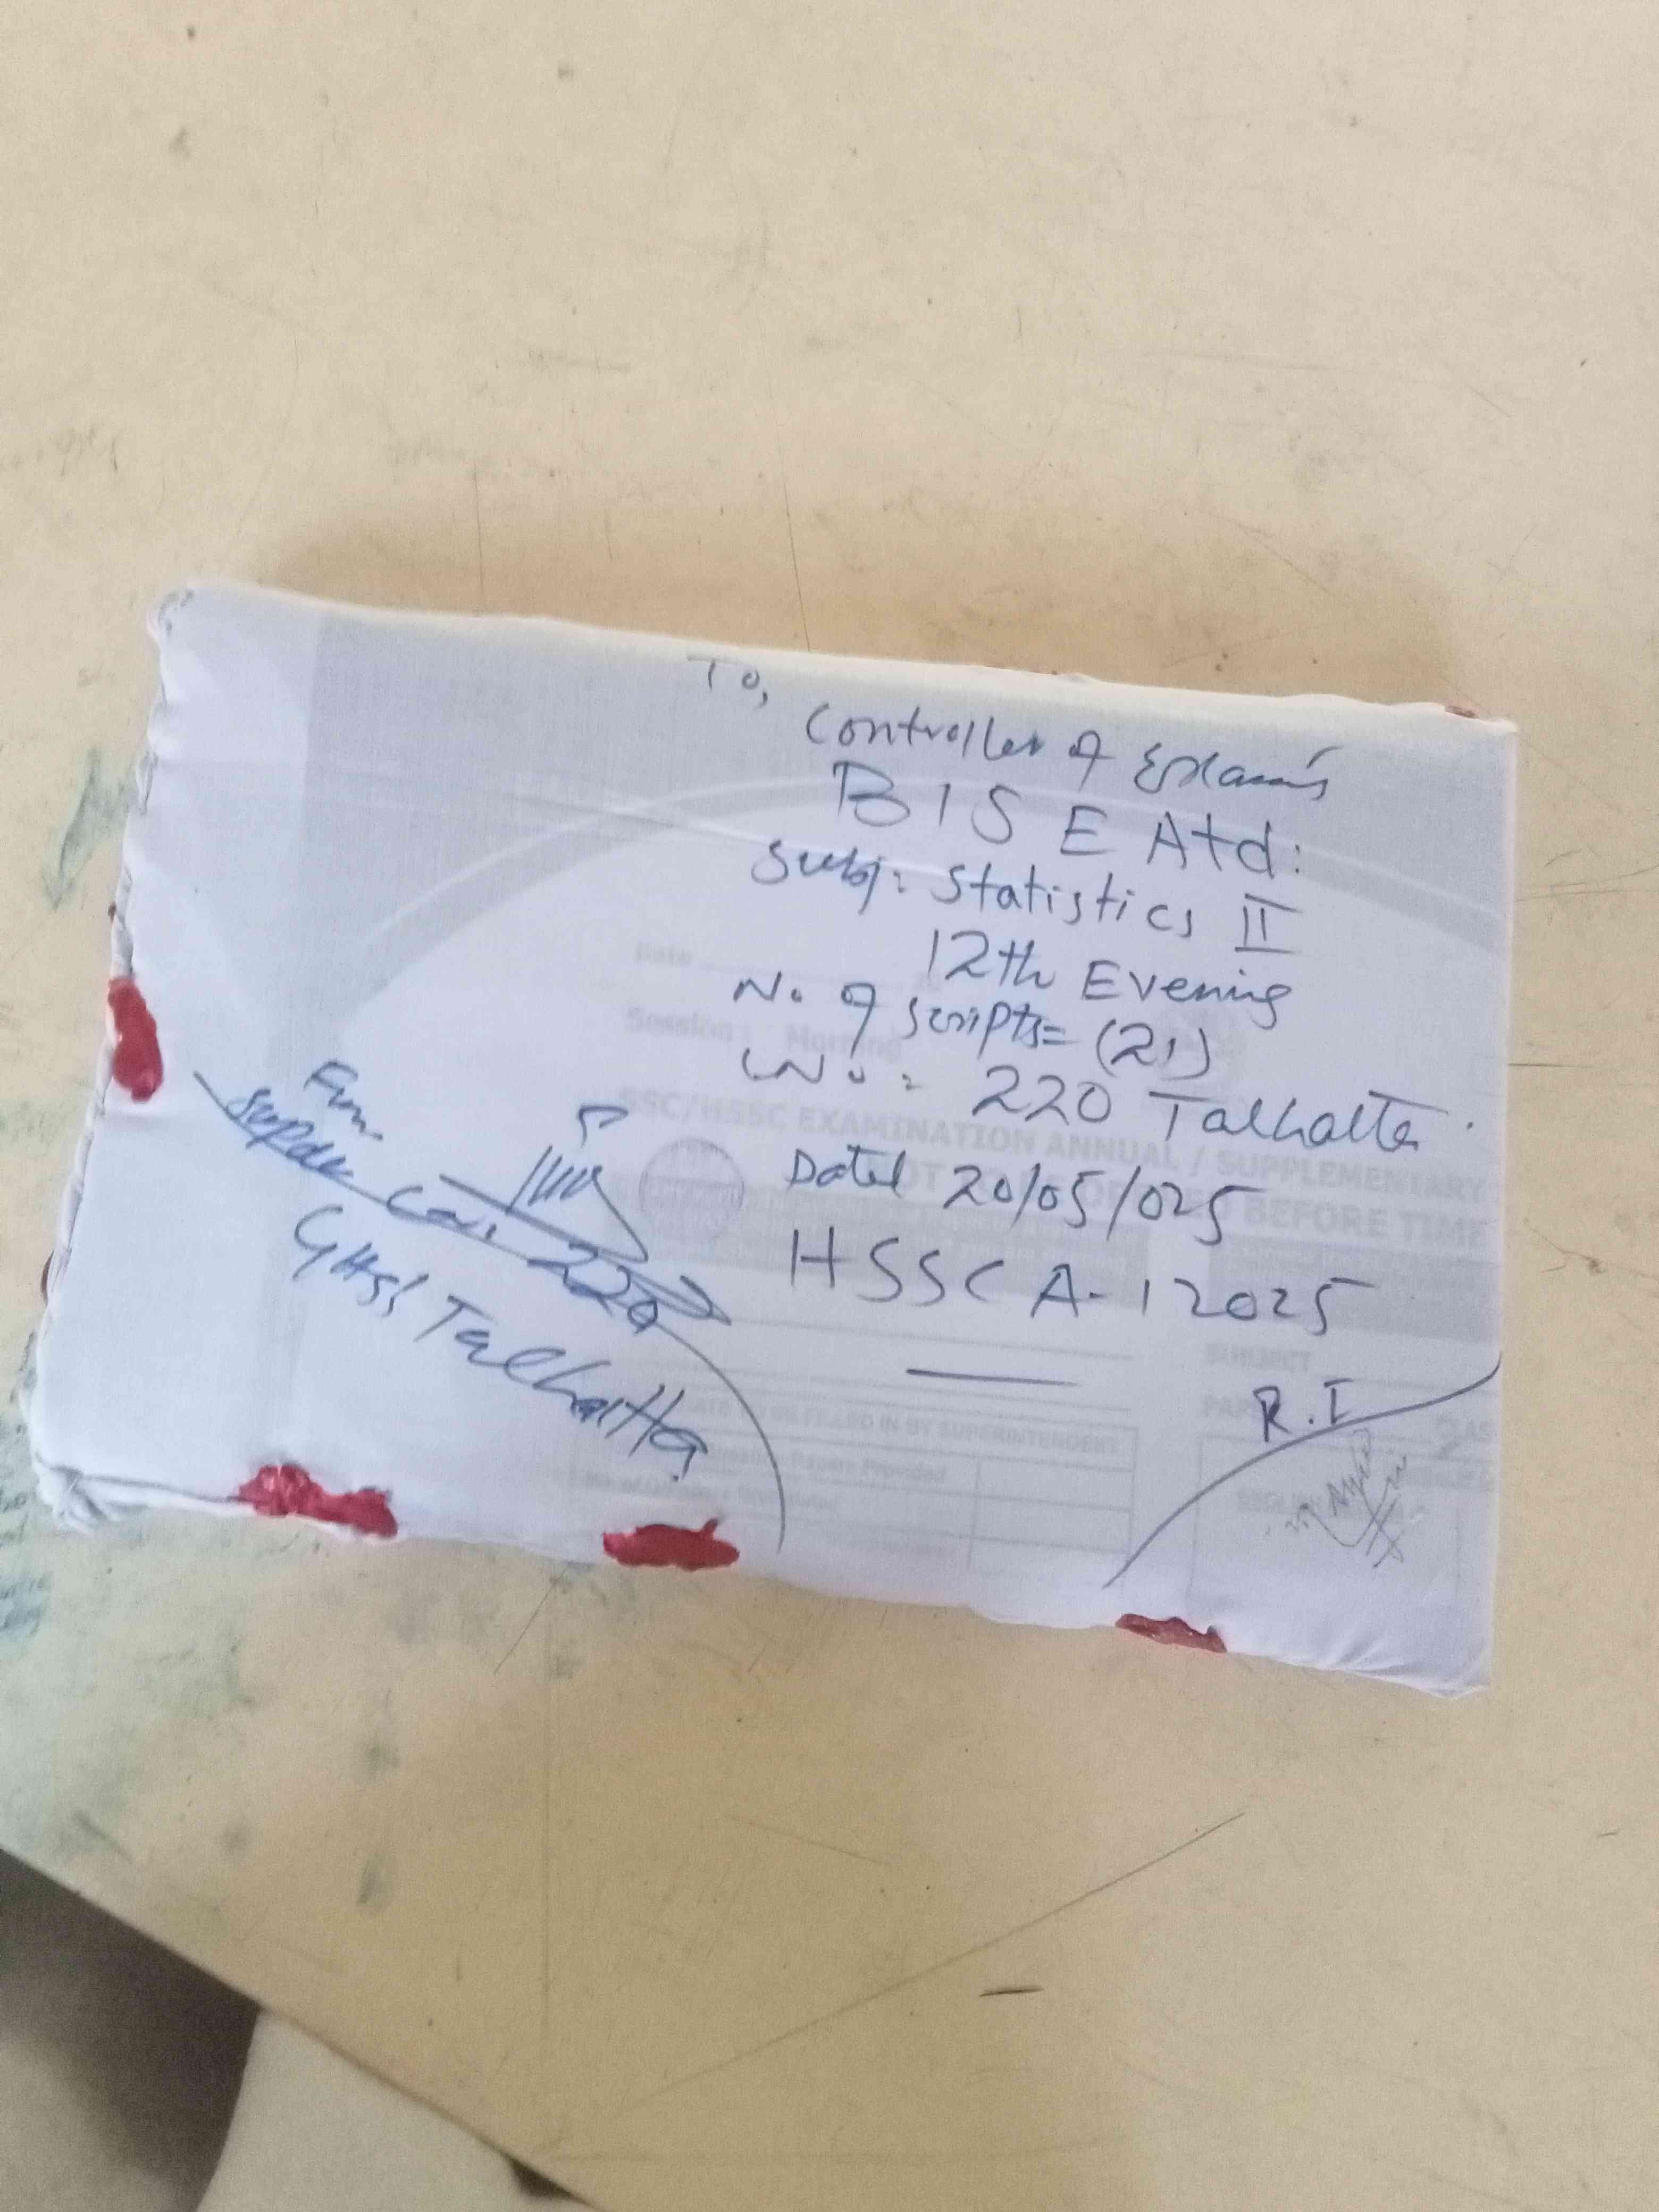 To,
Controller of Exams
BISE Atd:
Subj: Statistics II
12th Evening
No. of scripts= (21)
220 Talhatta
Dated 20/05/025
HSSC A-I 2025
R.I
From
Supdt
220
GHSS Talhatta
Date
Session : Morning
SSC/HSSC EXAMINATION ANNUAL / SUPPLEMENTARY
BEFORE TIME
SUBJECT
FILLED IN BY SUPERINTENDENT
Papers Provided